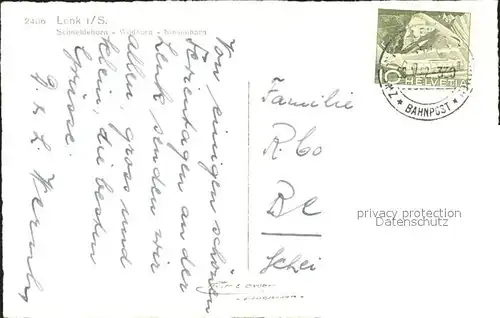 2406 Lenk i/S.
Schnidehorn - Wildhorn - Niesenhorn
Von einigen schönen
Ferientagen an der
Lenk senden wir
allen, gross und
klein, die besten
Grüsse.
Familie
R. Co
Be
Schei
HELVETIA
* BAHNPOST *
privacy protection
Datenschutz